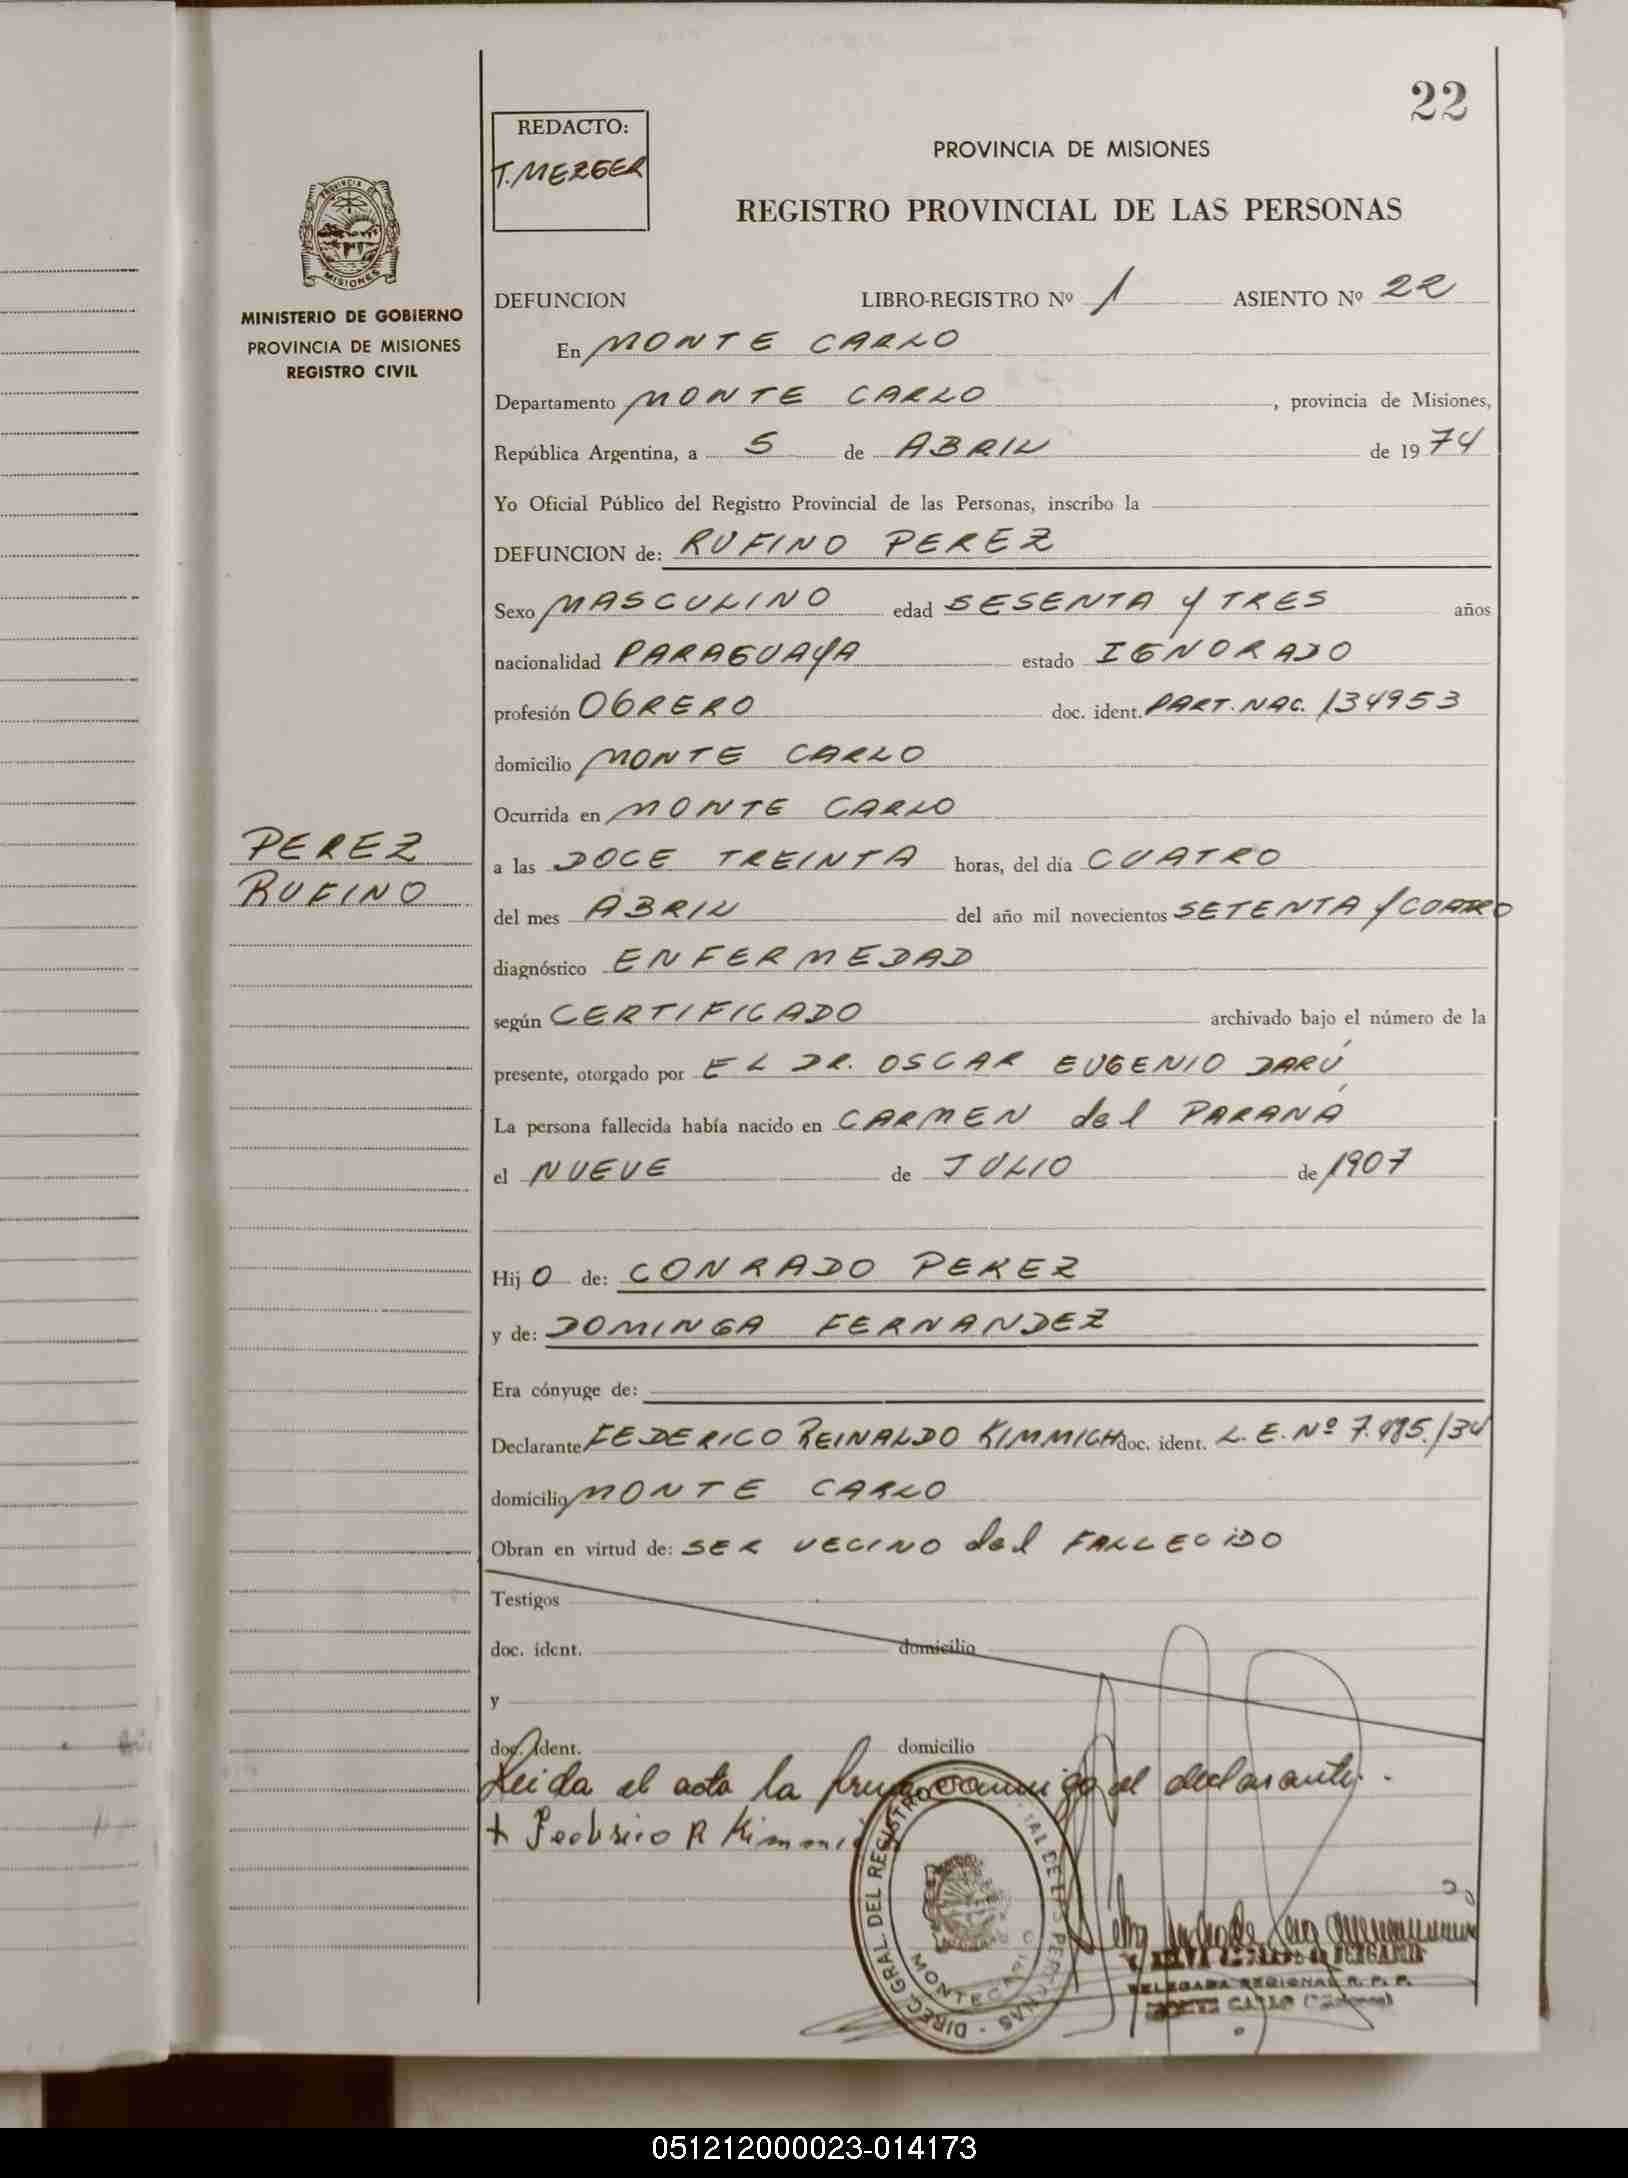 22
REDACTO:
T. MEZGER
PROVINCIA DE MISIONES
REGISTRO PROVINCIAL DE LAS PERSONAS
PROVINCIA DE
MISIONES
MINISTERIO DE GOBIERNO
PROVINCIA DE MISIONES
REGISTRO CIVIL
DEFUNCION LIBRO-REGISTRO Nº 1 ASIENTO Nº 22
En MONTE CARLO
Departamento MONTE CARLO, provincia de Misiones,
República Argentina, a 5 de ABRIL de 1974
Yo Oficial Público del Registro Provincial de las Personas, inscribo la
DEFUNCION de: RUFINO PEREZ
Sexo MASCULINO edad SESENTA Y TRES años
nacionalidad PARAGUAYA estado IGNORADO
profesión OBRERO doc. ident. PART. NAC. 134953
domicilio MONTE CARLO
Ocurrida en MONTE CARLO
PEREZ
RUFINO
a las DOCE TREINTA horas, del día CUATRO
del mes ABRIL del año mil novecientos SETENTA Y CUATRO
diagnóstico ENFERMEDAD
según CERTIFICADO archivado bajo el número de la
presente, otorgado por EL DR. OSCAR EUGENIO DARÚ
La persona fallecida había nacido en CARMEN del PARANÁ
el NUEVE de JULIO de 1907
Hij O de: CONRADO PEREZ
y de: DOMINGA FERNANDEZ
Era cónyuge de:
Declarante FEDERICO REINALDO KIMMICH doc. ident. L. E. Nº
domicilio MONTE CARLO
Obran en virtud de: SER VECINO del FALLECIDO
Testigos
doc. ident. domicilio
y
doc. ident. domicilio
Leida el acta la firma conmigo el declarante.-
+ Federico R Kimmich
DIREC. GRAL DEL REGISTRO DE LAS PERSONAS
MONTE CARLO
DELEGADA REGIONAL R. P. P.
MONTE CARLO (Misiones)
051212000023-014173